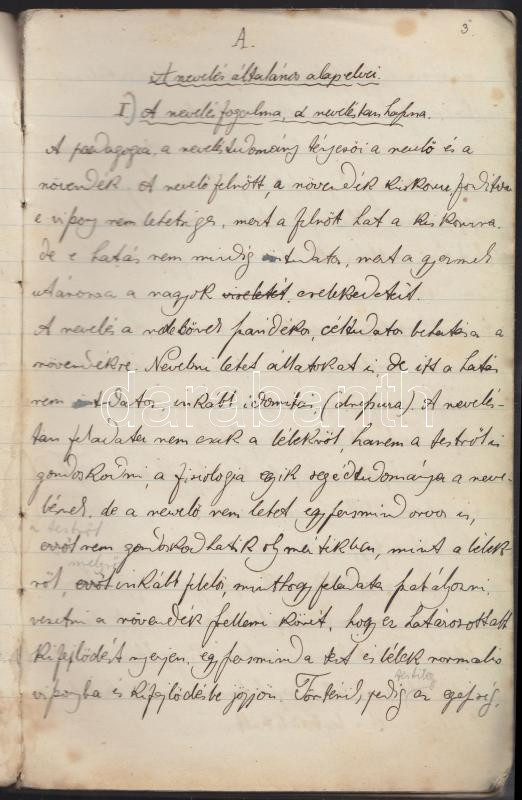 3.
A.
A nevelés általános alapelvei.
I) A nevelés fogalma, a neveléstan haszna.
A paedagogia, a neveléstudomány tényezői a nevelő és a
növendék. A nevelő felnőtt, a növendék kiskorú, fordítva
e viszony nem lehetséges, mert a felnőtt hat a kiskorúra.
de e hatás nem mindig öntudatos, mert a gyermek
utánozza a nagyok viseletét, cselekedeteit.
A nevelés a nevelőnek szándékos, céltudatos behatása a
növendékre. Nevelni lehet állatokat is, de itt a hatás
nem öntudatos, inkább idomítás, (dressura). A nevelés-
tan feladata nem csak a lélekről, hanem a testről is
gondoskodni, a fisiologia egyik segédtudománya a neve-
lésnek, de a nevelő nem lehet egyszersmind orvos is,
a testről
erről nem gondoskodhatik oly mértékben, mint a lélek-
melyről
ről, erről inkább felelős, minthogy feladata szabályozni,
vezetni a növendék szellemi körét, hogy ez határozottabb
kifejlődést nyerjen, egyszersmind a test és lélek normalis
testileg
viszonyba és kifejlődésbe jöjjön. Történik, pedig az egészség,
darabanth